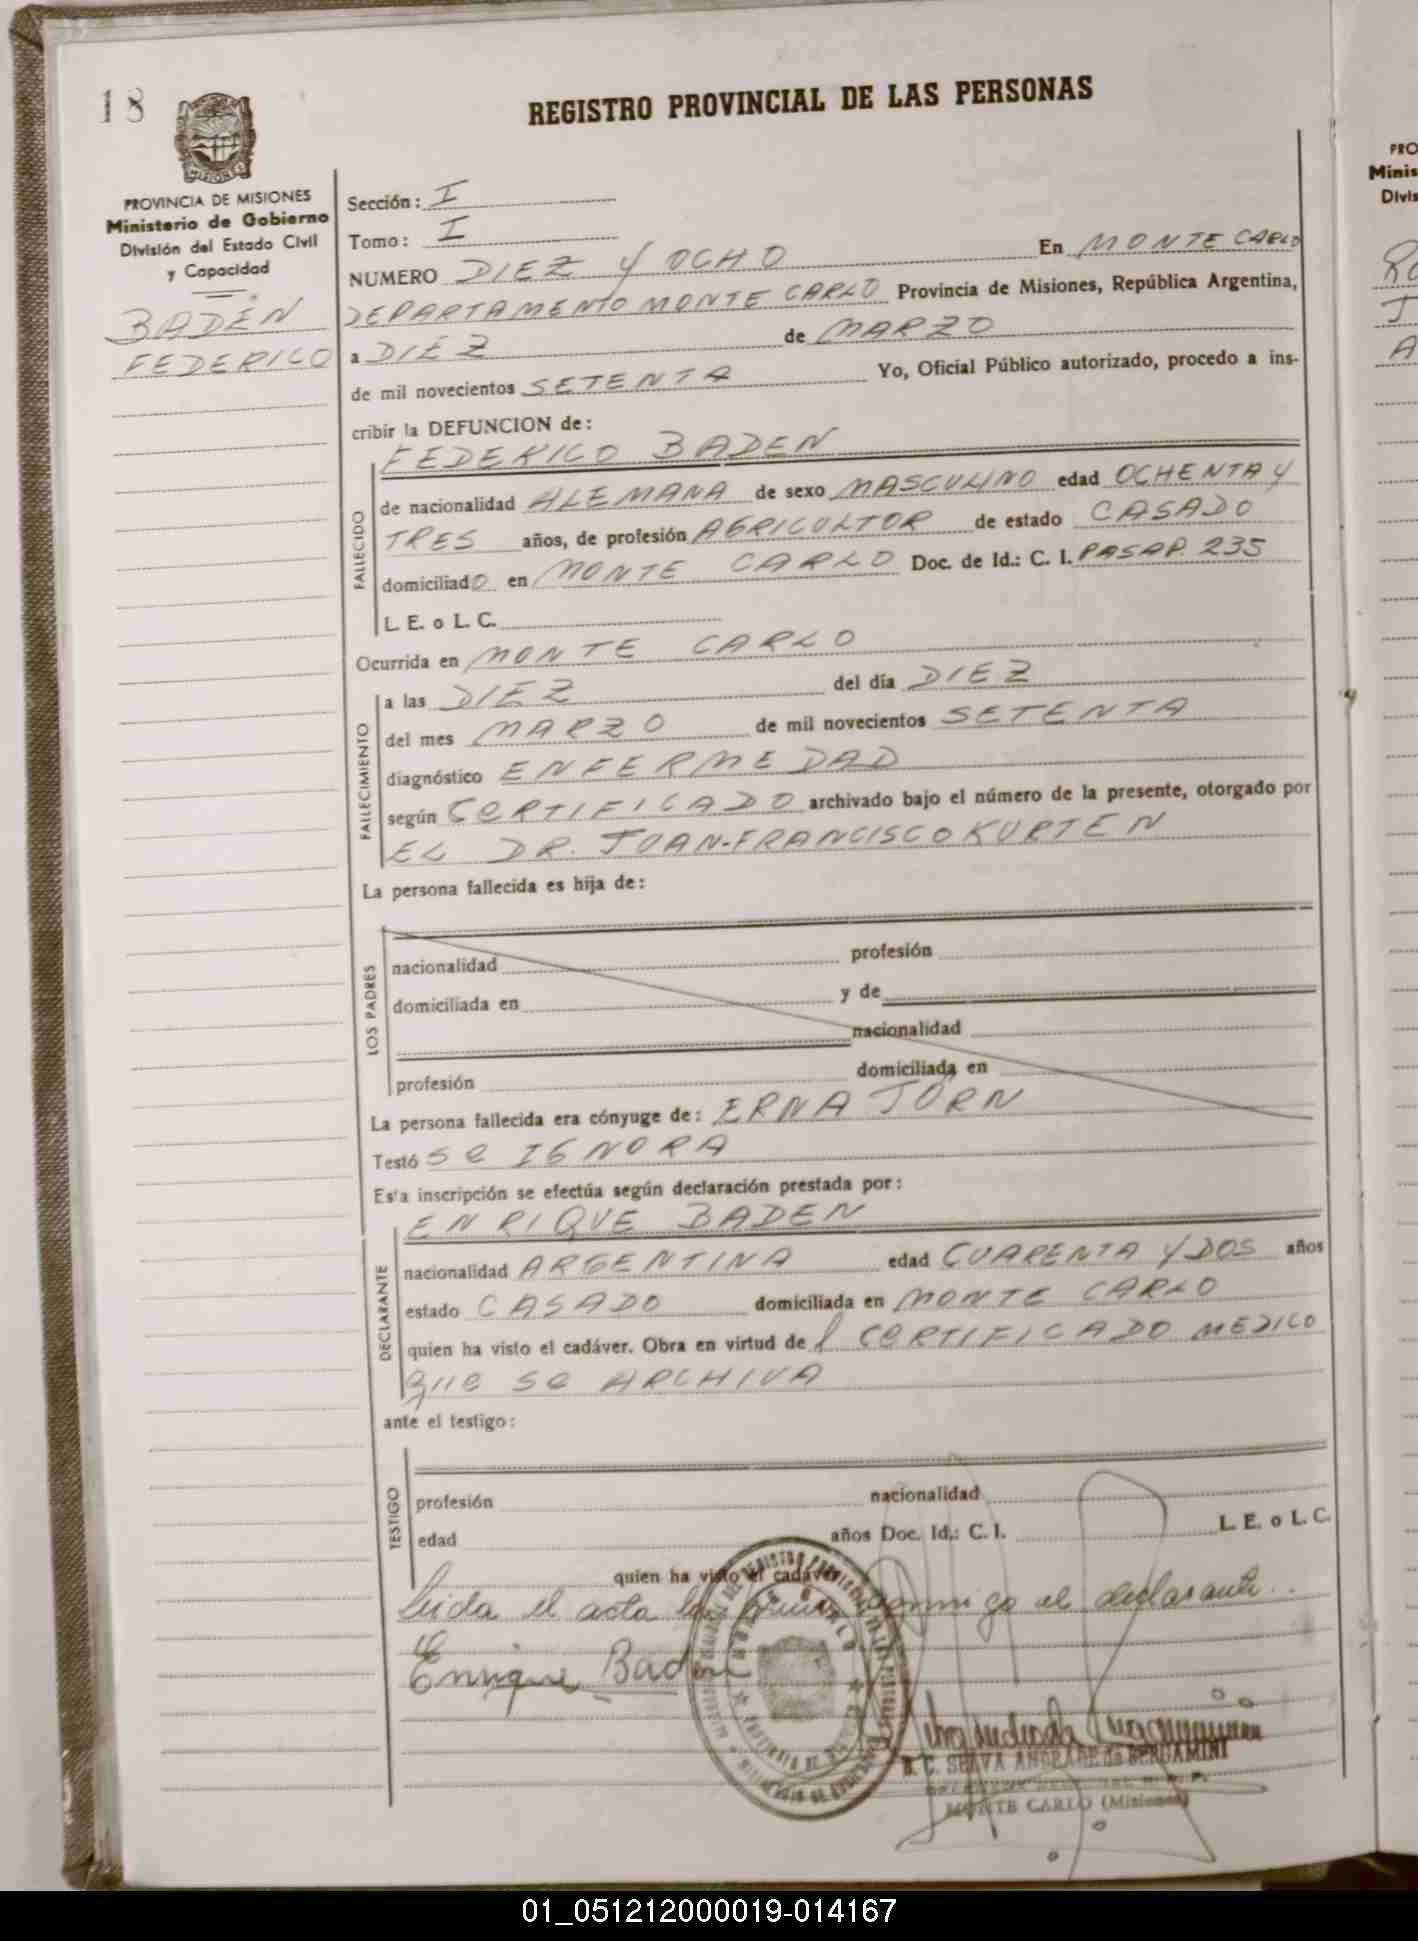 18
MISIONES
PROVINCIA DE MISIONES
Ministerio de Gobierno
División del Estado Civil
y Capacidad
BADEN
FEDERICO
REGISTRO PROVINCIAL DE LAS PERSONAS
Sección: I
Tomo: I
NUMERO DIEZ Y OCHO En MONTE CARLO
DEPARTAMENTO MONTE CARLO Provincia de Misiones, República Argentina,
a DIEZ de MARZO
de mil novecientos SETENTA Yo, Oficial Público autorizado, procedo a ins-
cribir la DEFUNCION de:
FEDERICO BADEN
FALLECIDO
de nacionalidad ALEMANA de sexo MASCULINO edad OCHENTA Y
TRES años, de profesión AGRICULTOR de estado CASADO
domiciliado en MONTE CARLO Doc. de Id.: C. I. PASAP. 235
L. E. o L. C.
Ocurrida en MONTE CARLO
FALLECIMIENTO
a las DIEZ del día DIEZ
del mes MARZO de mil novecientos SETENTA
diagnóstico ENFERMEDAD
según CERTIFICADO archivado bajo el número de la presente, otorgado por
EL DR. JUAN-FRANCISCO KURTEN
La persona fallecida es hija de:
LOS PADRES
nacionalidad profesión
domiciliada en y de
nacionalidad
profesión domiciliada en
La persona fallecida era cónyuge de: ERNA JÖRN
Testó Se IGNORA
Esta inscripción se efectúa según declaración prestada por:
ENRIQUE BADEN
DECLARANTE
nacionalidad ARGENTINA edad CUARENTA Y DOS años
estado CASADO domiciliada en MONTE CARLO
quien ha visto el cadáver. Obra en virtud del CERTIFICADO MEDICO
que se ARCHIVA
ante el testigo:
TESTIGO
profesión nacionalidad
edad años Doc. Id.: C. I. L. E. o L. C.
quien ha visto el cadáver
Leida el acta la firma conmigo el declarante.
Enrique Baden
B. C. SELVA ANDRADE de BERGAMINI
MONTE CARLO (Misiones)
PRO
Minis
Divis
01_051212000019-014167